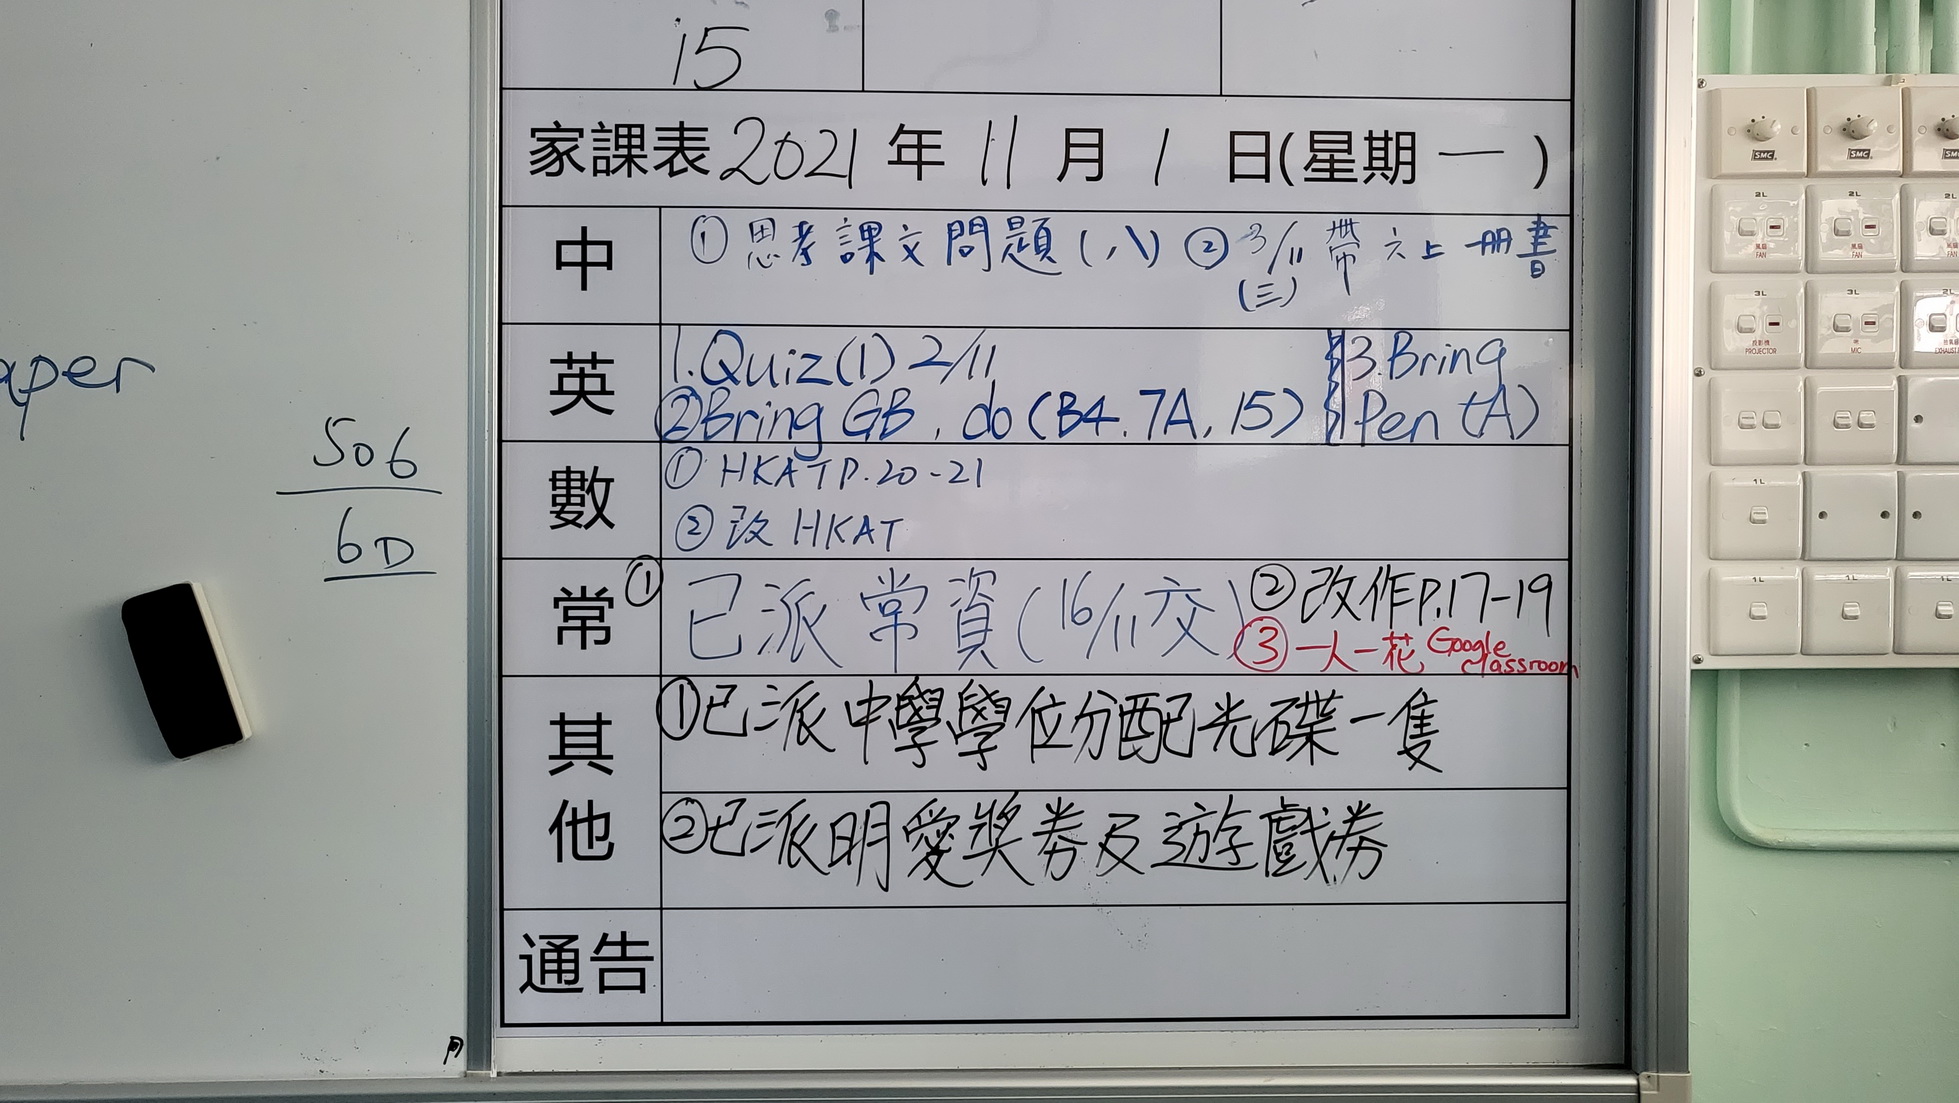 aper
506
6D
15
家課表 2021 年 11 月 1 日(星期 一 )
中
① 思考課文問題(八) ② 3/11 帶 六上 一冊書
(三)
英
1.Quiz(1) 2/11
②Bring GB, do (B4. 7A, 15)
3.Bring
Pen (A)
數
① HKAT P.20-21
② 改 HKAT
常
① 已派 常資(16/11交)
② 改作P.17-19
③ 一人一花 Google
classroom
其他
①已派中學學位分配光碟一隻
②已派明愛獎券及遊戲券
通告
SMC
SMC
SMC
2L
2L
2L
風扇
FAN
風扇
FAN
風扇
FAN
3L
3L
2L
投影機
PROJECTOR
咪
MIC
抽氣扇
EXHAUST
1L
1L
1L
1L